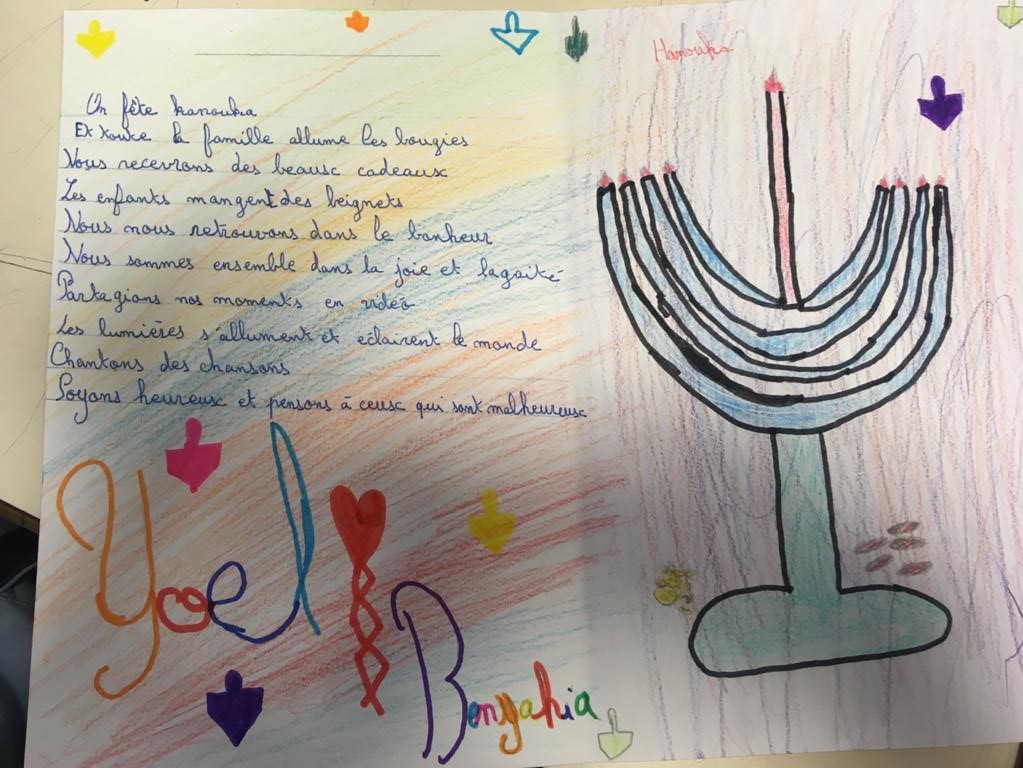 Hanouka
On fête hanouka
Et toute la famille allume les bougies
Nous recevrons des beaux cadeaux
Les enfants mangent des beignets
Nous nous retrouvons dans le bonheur
Nous sommes ensemble dans la joie et lagaité
Partagions nos moments en vidéo
Les lumières s'allument et eclairent le monde
Chantons des chansons
Soyons heureux et pensons à ceux qui sont malheureux
Yoel
Benyahia